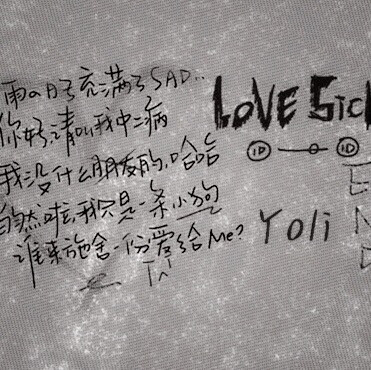 雨の日子充满了SAD..
你好,请叫我中二病
我没什么朋友的,哈哈
自然啦,我只是一条小狗
谁来施舍一份爱给Me?
LOVE SICK
ID
ID
Yoli
E
N
D